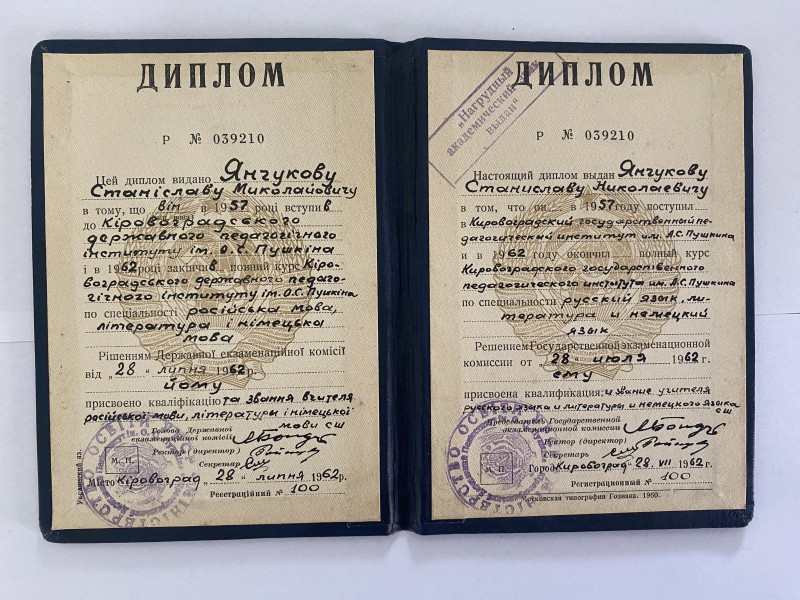 ДИПЛОМ
Р № 039210
Цей диплом видано Янчукову
Станіславу Миколайовичу
в тому, що він в 1957 році вступив
до Кіровоградського
державного педагогічного
інституту ім. О.С. Пушкіна
і в 1962 році закінчив повний курс Кіро-
воградського державного педаго-
гічного інституту ім. О.С. Пушкіна
по спеціальності російська мова,
література і німецька
мова
Рішенням Державної екзаменаційної комісії
від „28" липня 1962 р.
йому
присвоєно кваліфікацію та звання вчителя
російської мови, літератури і німецької
мови СШ
Голова Державної
екзаменаційної комісії
Ректор (директор)
Секретар
М. П.
Місто Кіровоград „28" липня 1962 р.
Реєстраційний № 100
Украинский яз.
ДИПЛОМ
„Нагрудный
академический знак
выдан"
Р № 039210
Настоящий диплом выдан Янчукову
Станиславу Николаевичу
в том, что он в 1957 году поступил
в Кировоградский государственный пе-
дагогический институт им. А.С. Пушкина
и в 1962 году окончил полный курс
Кировоградского государственного
педагогического института им. А.С. Пушкина
по специальности русский язык, ли-
тература и немецкий
язык
Решением Государственной экзаменационной
комиссии от „28" июля 1962 г.
ему
присвоена квалификация и звание учителя
русского языка и литературы и немецкого языка
СШ
Председатель Государственной
экзаменационной комиссии
Ректор (директор)
Секретарь
М. П.
Город Кировоград 28. VII 1962 г.
Регистрационный № 100
Московская типография Гознака. 1960.